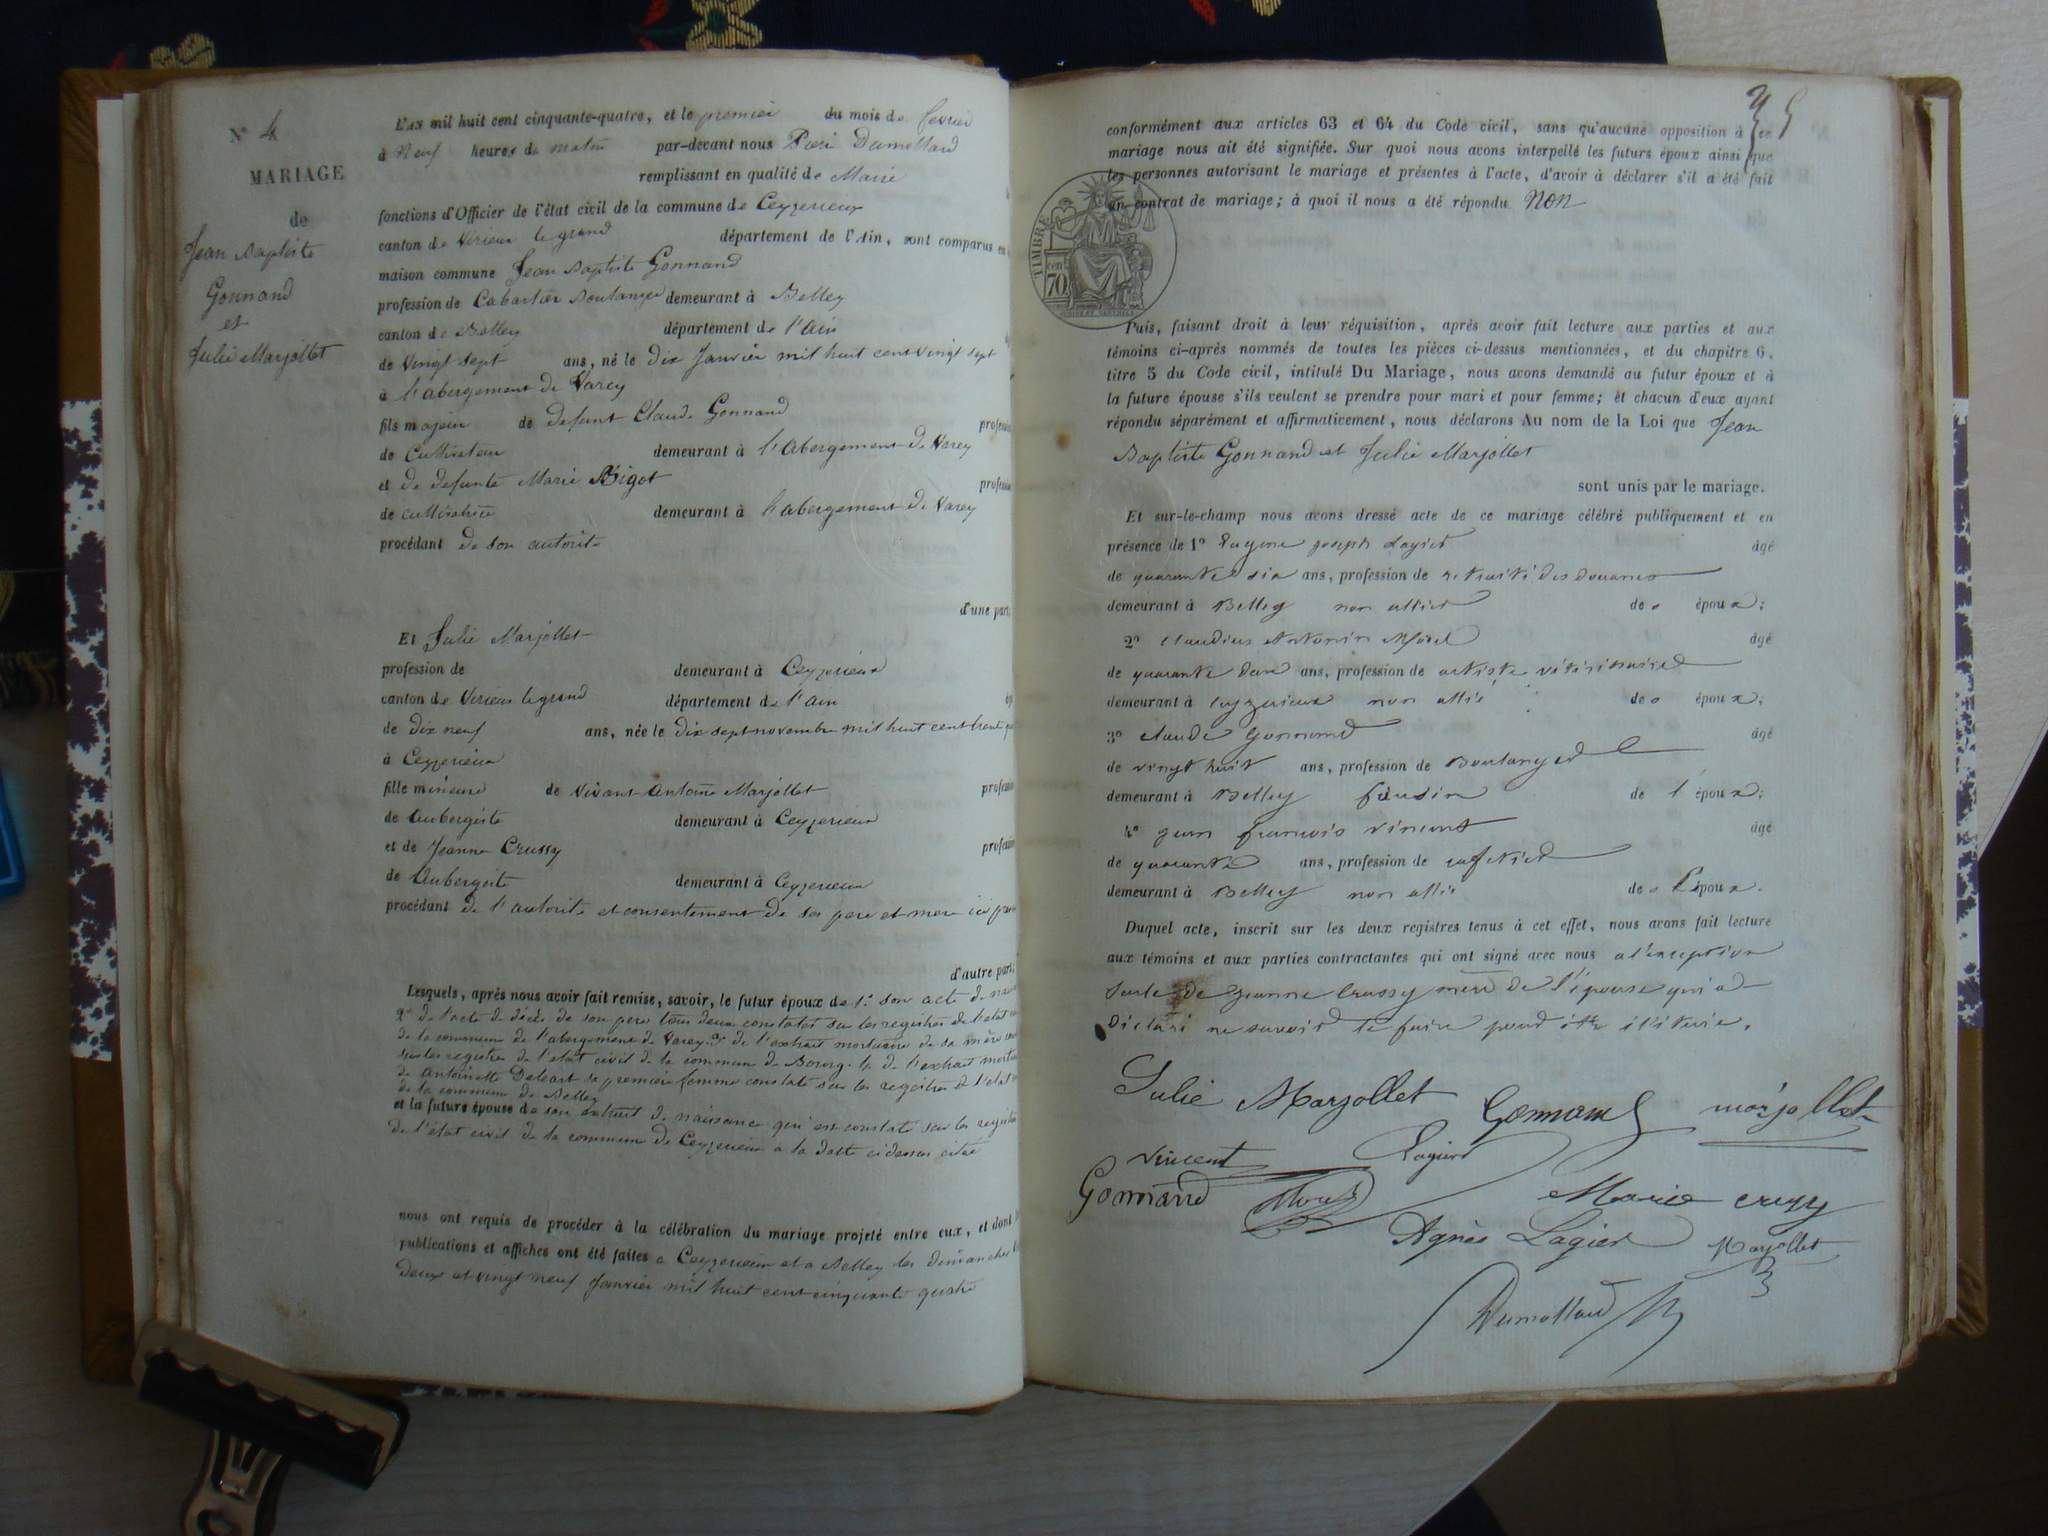 N° 4
MARIAGE
de
Jean Baptiste
Gonnand
et
Julie Marjollet
L'AN mil huit cent cinquante-quatre, et le premier du mois de fevrier
à Neuf heures du matin par-devant nous Dumollard
remplissant en qualité de Maire
fonctions d'Officier de l'état civil de la commune de Ceyzerieux
canton de Virieux le grand département de l'Ain, sont comparus en
maison commune Jean Baptiste Gonnand
profession de Cabartier Boulanger demeurant à Belley
canton de Belley département de l'ain
de vingt sept ans, né le dix Janvier mil huit cent vingt sept
à l'abergement de Varey
fils majeur de defunt Claude Gonnand profession
de Cultivateur demeurant à l'Abergement de Varey
et de defunte Marie Bigot profession
de cultivatrice demeurant à l'abergement de Varey
procédant de son autorité
d'une part;
Et Julie Marjollet
profession de demeurant à Ceyzerieux
canton de Virieux le grand département de l'ain
de dix neuf ans, née le dix sept novembre mil huit cent trente
à Ceyzerieux
fille mineure de vivant Antoine Marjollet profession
de Aubergiste demeurant à Ceyzerieux
et de Jeanne Crussy profession
de Aubergiste demeurant à Ceyzerieux
procédant de l'autorité et consentement de ses pere et mere ici
d'autre part;
Lesquels, après nous avoir fait remise, savoir, le futur époux de 1° son acte de
2° de l'acte de décès de son pere tous deux constatés sur les registres de l'etat
de la commune de l'abergement de Varey. 3° de l'extrait mortuaire de sa mère
sur les registres de l'etat civil de la commune de Bourg. 4. de l'extrait
de Antoinette sa premiere femme constaté sur les registres de l'etat
de la commune de Belley
et la future épouse de son extrait de naissance qui est constaté sur les registres
de l'état civil de la commune de Ceyzerieux a la date cidessus citée
nous ont requis de procéder à la célébration du mariage projeté entre eux, et dont
publications et affiches ont été faites a Ceyzerieux et a Belley les dimanches
deux et vingt neuf Janvier mil huit cent cinquante quatre
conformément aux articles 63 et 64 du Code civil, sans qu'aucune opposition à ce
mariage nous ait été signifiée. Sur quoi nous avons interpellé les futurs époux ainsi que
les personnes autorisant le mariage et présentes à l'acte, d'avoir à déclarer s'il a été fait
un contrat de mariage; à quoi il nous a été répondu Non
TIMBRE
cen
70
Puis, faisant droit à leur réquisition, après avoir fait lecture aux parties et aux
témoins ci-après nommés de toutes les pièces ci-dessus mentionnées, et du chapitre 6,
titre 5 du Code civil, intitulé Du Mariage, nous avons demandé au futur époux et à
la future épouse s'ils veulent se prendre pour mari et pour femme; et chacun d'eux ayant
répondu séparément et affirmativement, nous déclarons Au nom de la Loi que Jean
Baptiste Gonnand et Julie Marjollet
sont unis par le mariage.
Et sur-le-champ nous avons dressé acte de ce mariage célébré publiquement et en
présence de 1° Eugene joseph Lagier âgé
de quarante six ans, profession de retraité des douanes
demeurant à Belley non allié de époux;
2° Claudius Antonin Morel âgé
de quarante deux ans, profession de artiste vétérinaire
demeurant à Ceyzerieux non allié de époux;
3° Claude Gonnand âgé
de vingt huit ans, profession de Boulanger
demeurant à Belley cousin de l'époux;
4° jean francois vincent âgé
de quarante ans, profession de cafetier
demeurant à Belley non allié de l'époux.
Duquel acte, inscrit sur les deux registres tenus à cet effet, nous avons fait lecture
aux témoins et aux parties contractantes qui ont signé avec nous a l'exception
seule de jeanne Crussy mère de l'épouse qui a
déclaré ne savoir le faire pour être
Julie Marjollet Gonnand marjollet
Vincent Lagier
Gonnand Morel Marie crussy
Agnès Lagier Marjollet
Dumollard